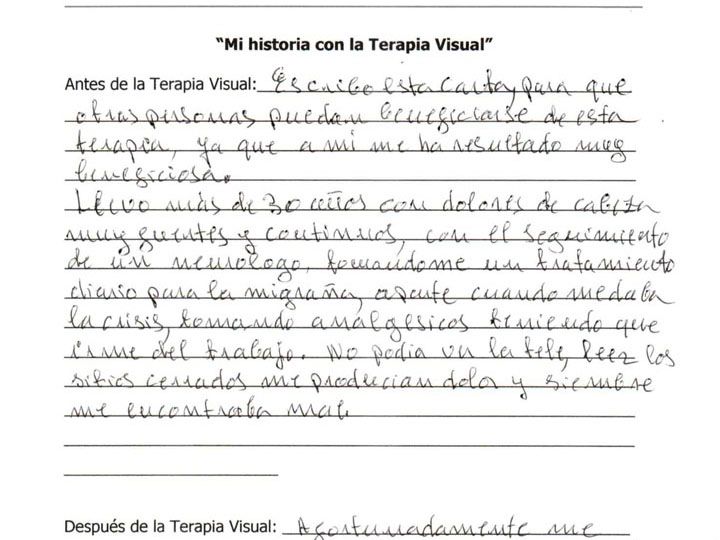 “Mi historia con la Terapia Visual”
Antes de la Terapia Visual: Escribo esta carta, para que
otras personas puedan beneficiarse de esta
terapia, ya que a mi me ha resultado muy
beneficiosa.
Llevo más de 30 años con dolores de cabeza
muy fuertes y continuos, con el seguimiento
de un neurólogo, tomandome un tratamiento
diario para la migraña, aparte cuando me daba
la crisis, tomando analgésicos teniendo que
irme del trabajo. No podia ver la tele, leer los
sitios cerrados me producian dolor y siembre
me encontraba mal.
Después de la Terapia Visual: Afortunadamente me